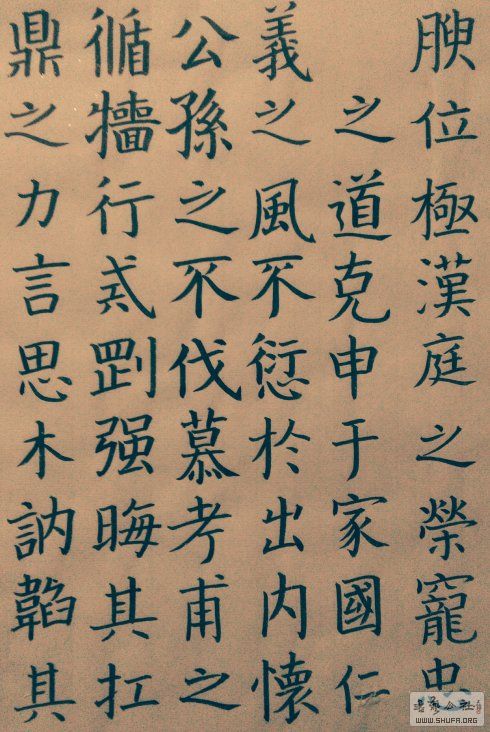 腴位極漢庭之榮寵忠
之道克申于家國仁
義之風不愆於出内懷
公孫之不伐慕考甫之
循牆行戒剛强晦其扛
鼎之力言思木訥韜其
書藝公社
WWW.SHUFA.ORG